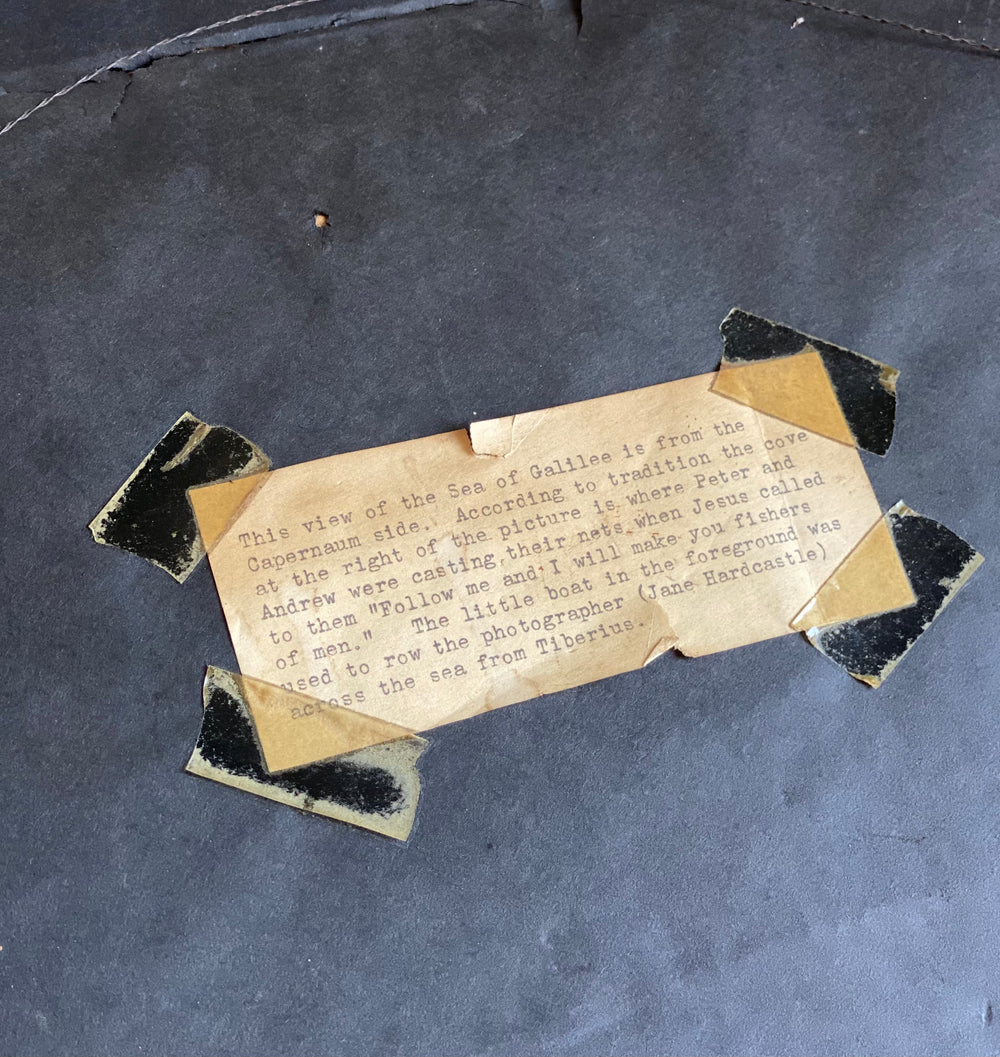 This view of the Sea of Galilee is from the
Capernaum side. According to tradition the cove
at the right of the picture is where Peter and
Andrew were casting their nets when Jesus called
to them "Follow me and I will make you fishers
of men." The little boat in the foreground was
used to row the photographer (Jane Hardcastle)
across the sea from Tiberius.